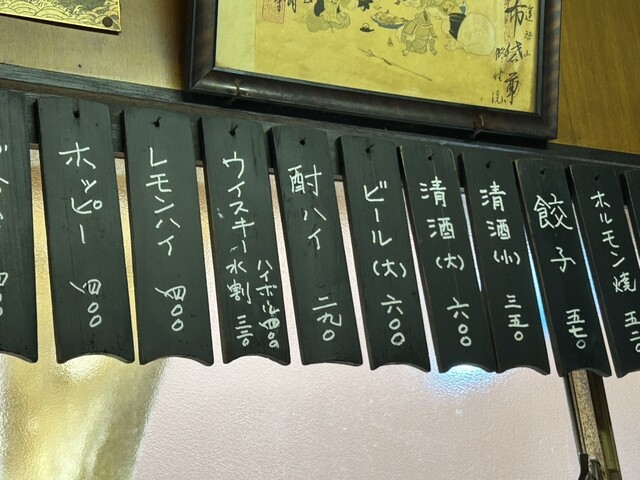 ホルモン焼
餃子 五七〇
清酒(小) 三五〇
清酒(大) 六〇〇
ビール(大) 六〇〇
酎ハイ 二九〇
ウイスキー水割 三三〇
ハイボール四〇〇
レモンハイ 四〇〇
ホッピー 四〇〇
四〇〇